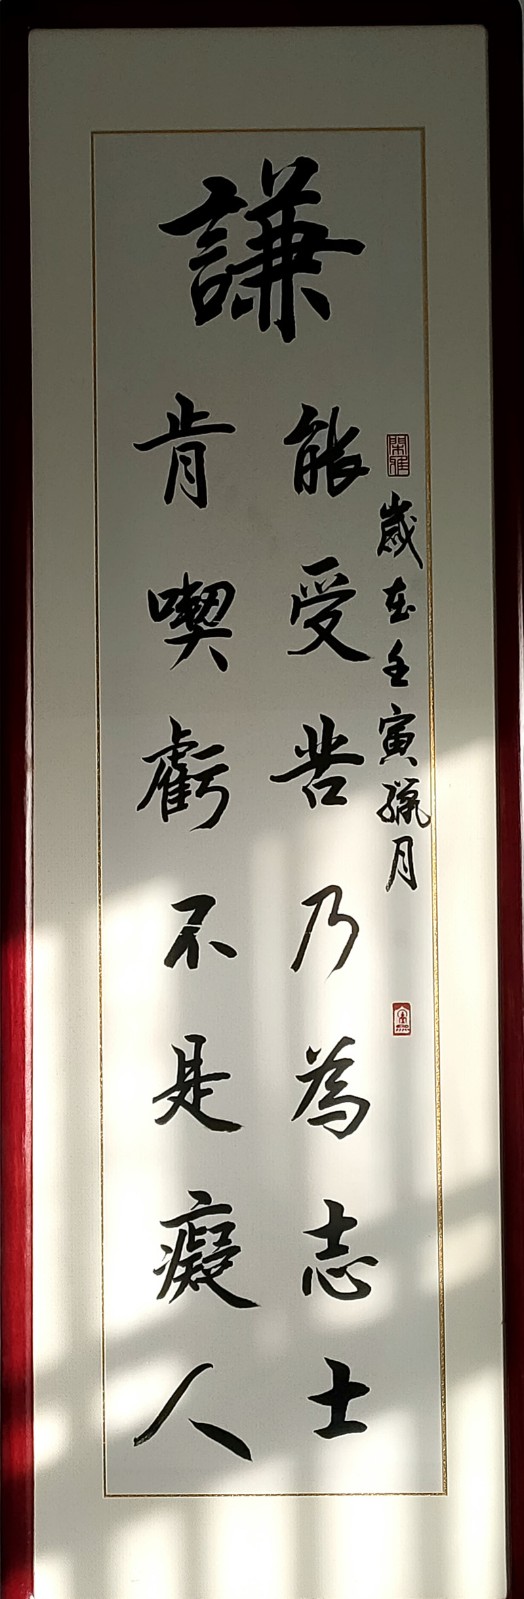 謙
歲在壬寅臘月
能受苦乃為志士
肯喫虧不是癡人